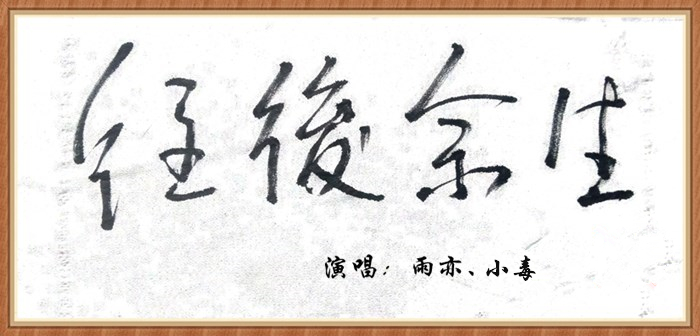 往後余生
演唱：雨亦、小毒